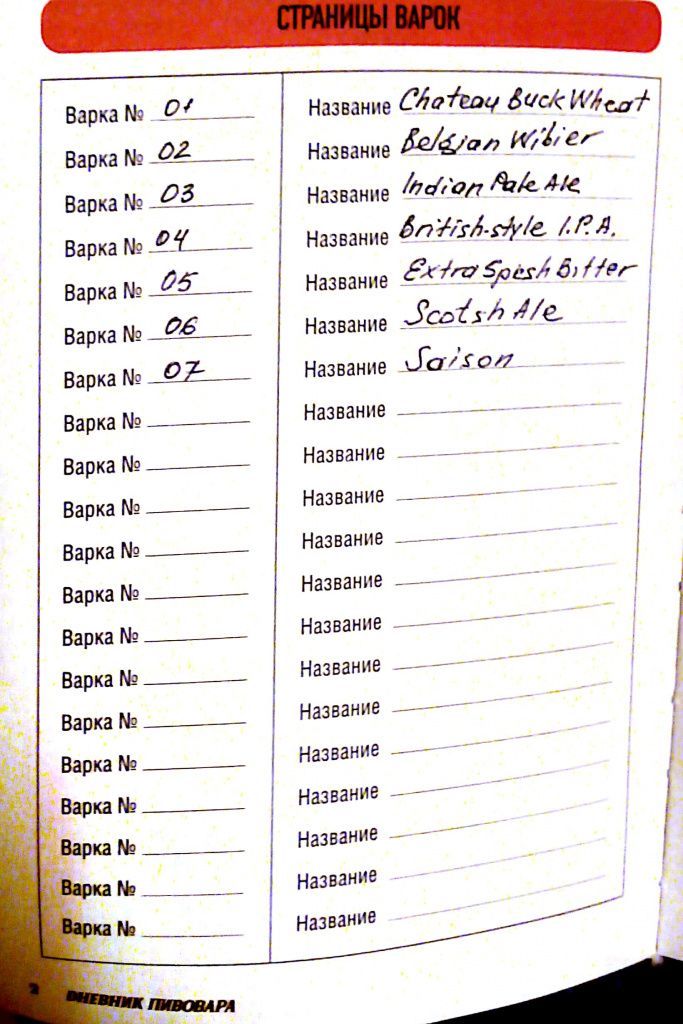 СТРАНИЦЫ ВАРОК
Варка № 01 Название Chateau Buck Wheat
Варка № 02 Название Belgian Wibier
Варка № 03 Название Indian Pale Ale
Варка № 04 Название British-style I.P.A.
Варка № 05 Название Extra Spesh Bitter
Варка № 06 Название Scotsh Ale
Варка № 07 Название Saison
Варка № Название
Варка № Название
Варка № Название
Варка № Название
Варка № Название
Варка № Название
Варка № Название
Варка № Название
Варка № Название
Варка № Название
Варка № Название
Варка № Название
Варка № Название
2 ДНЕВНИК ПИВОВАРА